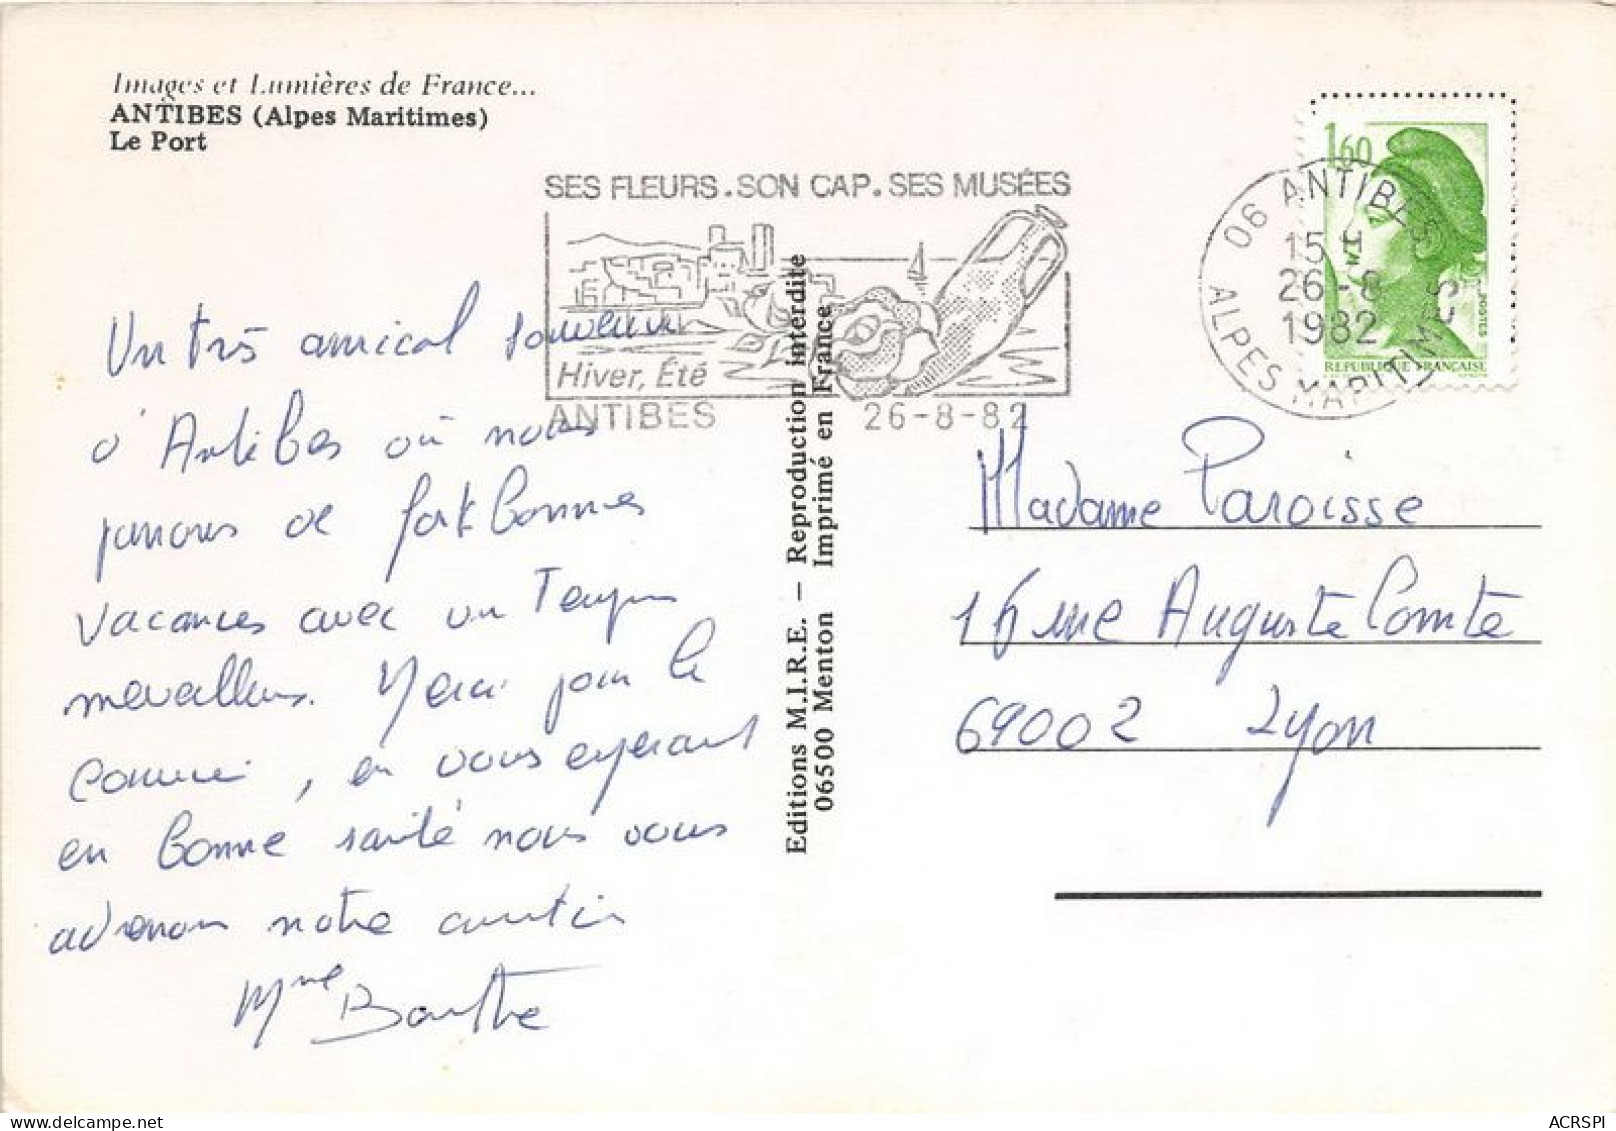 Images et Lumières de France...
ANTIBES (Alpes Maritimes)
Le Port
SES FLEURS.SON CAP.SES MUSÉES
Hiver, Été
ANTIBES 26-8-82
1,60
POSTES
REPUBLIQUE FRANÇAISE
06 ANTIBES
15 H
26-8
1982
ALPES MARITIMES
Un très amical souvenir
d'Antibes où nous
passons de fort bonnes
vacances avec un Temps
merveilleux. Merci pour le
, en vous espérant
en bonne santé nous vous
adressons notre
Mme Barthe
Editions M.I.R.E. — Reproduction interdite
06500 Menton Imprimé en France
Madame Paroisse
16 rue Auguste Comte
69002 Lyon
ACRSPI